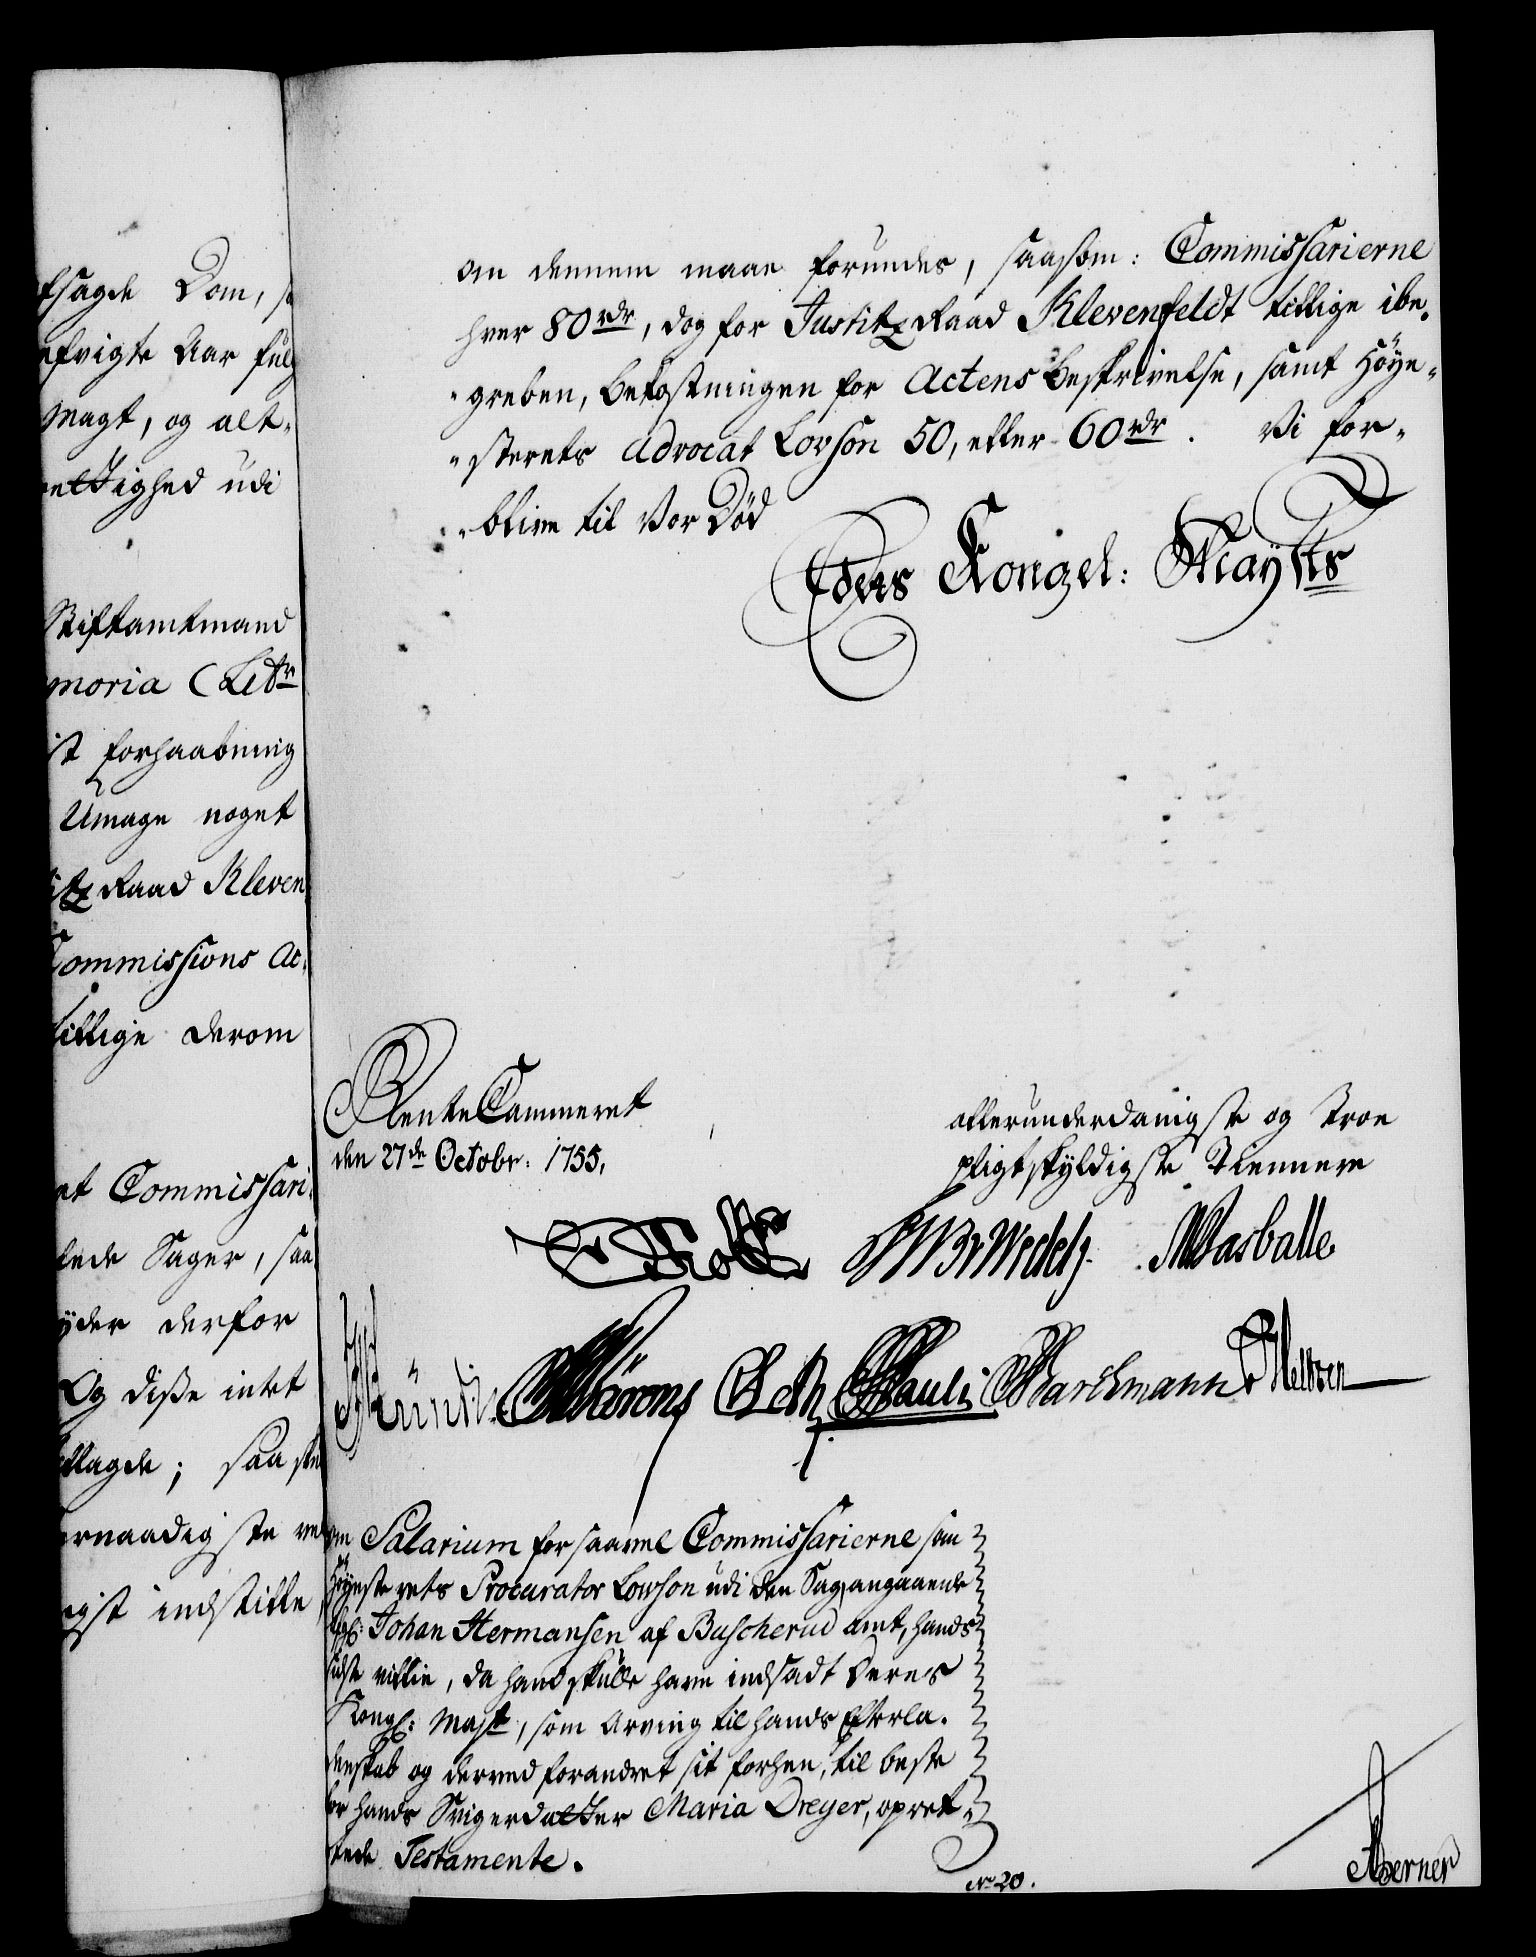 fsagde Dom, s
efvigte Aar ful
Magt, og alt-
rettighed udi
Stiftamtmand
moria (Litr
ist forhaabning
Umage noget
itz Raad Kleven
Commissions Ac-
tillige derom
et Commissari-
tede Sager, saa
yder derfor
Og disse intet
tlagde; saa ske
ernaadigste ve
igst indstille
om dennem maae forundes, saasom: Commissarierne
hver 80 rdr, dog for Justitz Raad Klevenfeldt tillige ibe-
-greben, bekostningen for Actens beskrivelse, samt Höye-
-sterets Advocat Lovson 50, eller 60 rdr. Vi for-
-blive til Vor Död
Eders Kongel: Mayts
Rente Cammeret
den 27de Octobr: 1755.
allerunderdanigste og Troe
pligtskyldigste Tiennere
Holck Wedel Wasballe
Pauli Barchmann Heltzen
om Salarium for saavel Commissarierne som
Höyeste rets Procurator Lowson udi den Sag, angaaende
Johan Hermansen af Buscherud amt, hands
sidste villie, da hand skulle have indsadt Deres
Kongl: Mayst, som Arving til hands Efterla-
denskab og derved forandret sit forhen, til beste
for hands Svigerdatter Maria Dreyer, opret-
tede Testamente.
No 20.
Berner